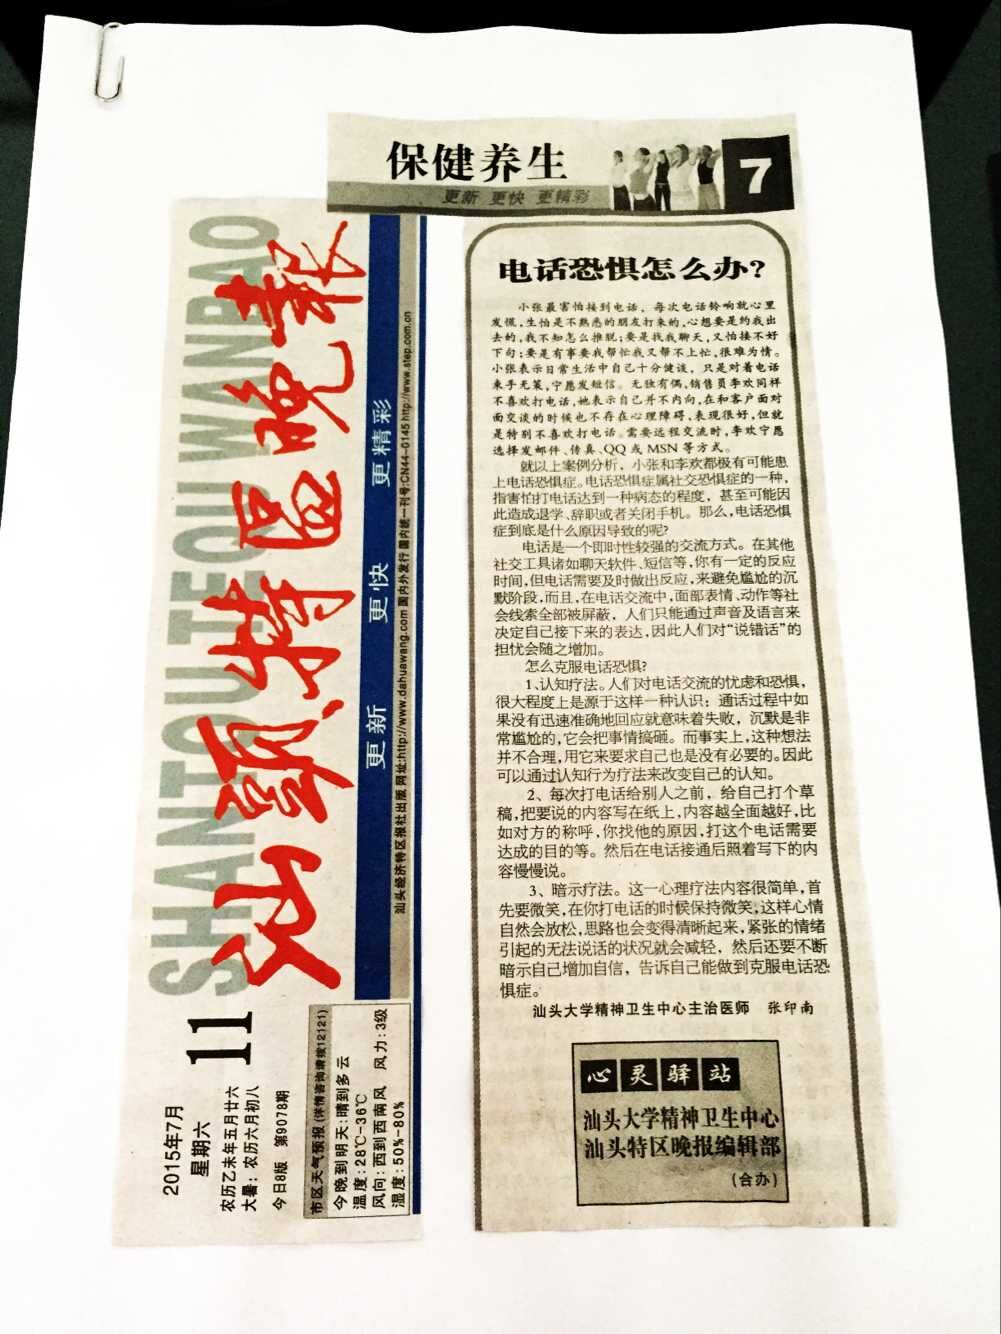 保健养生
更新 更快 更精彩
7
SHANTOU TEQU WANBAO
汕頭特區晚報
更新 更快 更精彩
汕头经济特区报社出版 网址:http://www.dahuawang.com 国内外发行 国内统一刊号:CN44-0145 http://www.step.com.cn
2015年7月
星期六
11
农历乙未年五月廿六
大暑:农历六月初八
今日8版 第9078期
市区天气预报(详情咨询请拨12121)
今晚到明天:晴到多云
温度:28℃-36℃
风向:西到西南风 风力:3级
湿度:50%-80%
电话恐惧怎么办?
小张最害怕接到电话，每次电话铃响就心里
发慌,生怕是不熟悉的朋友打来的,心想要是约我出
去的,我不知怎么推脱;要是找我聊天,又怕接不好
下句;要是有事要我帮忙我又帮不上忙,很难为情。
小张表示日常生活中自己十分健谈，只是对着电话
束手无策,宁愿发短信。无独有偶,销售员李欢同样
不喜欢打电话,她表示自己并不内向,在和客户面对
面交谈的时候也不存在心理障碍,表现很好,但就
是特别不喜欢打电话。需要远程交流时,李欢宁愿
选择发邮件、传真、QQ或MSN等方式。
就以上案例分析，小张和李欢都极有可能患
上电话恐惧症。电话恐惧症属社交恐惧症的一种，
指害怕打电话达到一种病态的程度，甚至可能因
此造成退学、辞职或者关闭手机。那么,电话恐惧
症到底是什么原因导致的呢?
电话是一个即时性较强的交流方式。在其他
社交工具诸如聊天软件、短信等,你有一定的反应
时间,但电话需要及时做出反应,来避免尴尬的沉
默阶段,而且,在电话交流中,面部表情、动作等社
会线索全部被屏蔽，人们只能通过声音及语言来
决定自己接下来的表达,因此人们对“说错话”的
担忧会随之增加。
怎么克服电话恐惧?
1、认知疗法。人们对电话交流的忧虑和恐惧,
很大程度上是源于这样一种认识：通话过程中如
果没有迅速准确地回应就意味着失败，沉默是非
常尴尬的,它会把事情搞砸。而事实上,这种想法
并不合理,用它来要求自己也是没有必要的。因此
可以通过认知行为疗法来改变自己的认知。
2、每次打电话给别人之前，给自己打个草
稿,把要说的内容写在纸上,内容越全面越好,比
如对方的称呼,你找他的原因,打这个电话需要
达成的目的等。然后在电话接通后照着写下的内
容慢慢说。
3、暗示疗法。这一心理疗法内容很简单,首
先要微笑,在你打电话的时候保持微笑,这样心情
自然会放松,思路也会变得清晰起来,紧张的情绪
引起的无法说话的状况就会减轻，然后还要不断
暗示自己增加自信，告诉自己能做到克服电话恐
惧症。
汕头大学精神卫生中心主治医师 张印南
心灵驿站
汕头大学精神卫生中心
汕头特区晚报编辑部
(合办)